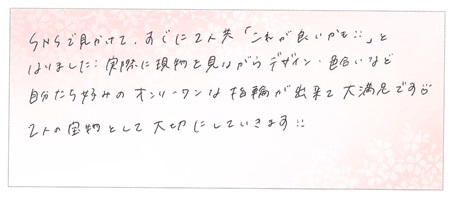 SNSで見かけて、すぐに2人共「これが良いかも!!」と
はりました!! 実際に現物を見ながらデザイン・色合いなど
自分たち好みのオンリーワンな指輪が出来て大満足です
2人の宝物として大切にしていきます!!